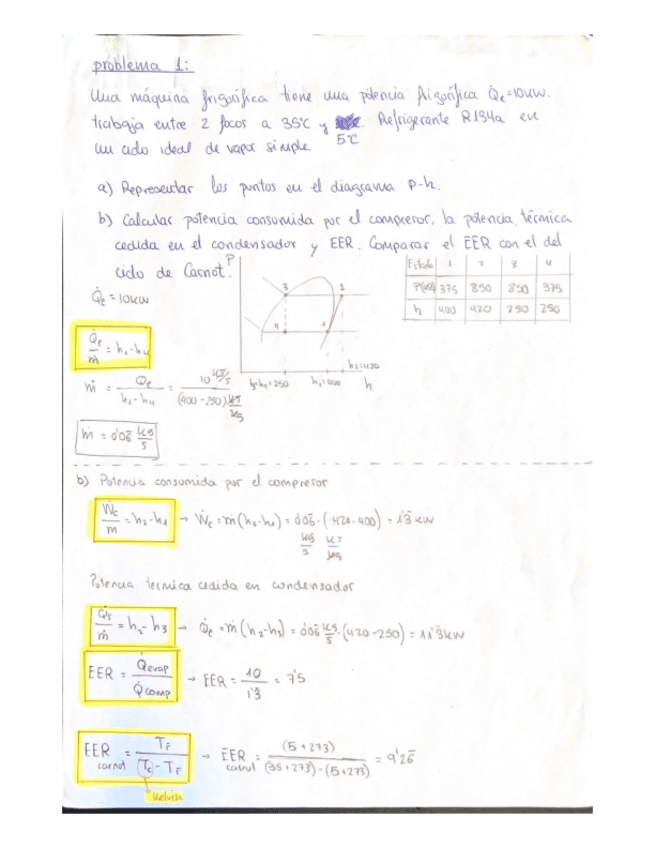 problema 1:
Una máquina frigorífica tiene una potencia frigorífica Q̇e=10kW.
trabaja entre 2 focos a 35ºC y 5ºC. Refrigerante R134a en
un ciclo ideal de vapor simple.
a) Representar los puntos en el diagrama p-h.
b) Calcular potencia consumida por el compresor, la potencia térmica
cedida en el condensador y EER. Comparar el EER con el del
ciclo de Carnot.
Q̇e = 10kW
P
3 2
4 1
h2=420
h3=h4=250 h1=400 h
Estado 1 2 3 4
P(kPa) 375 890 890 375
h 400 420 250 250
Q̇e/ṁ = h1-h4
ṁ = Q̇e/(h1-h4) = 10 kJ/s / (400-250) kJ/kg
ṁ = 0'06̅ kg/s
b) Potencia consumida por el compresor
Ẇc/ṁ = h2-h1 → Ẇc = ṁ(h2-h1) = 0'06̅ · (420-400) = 1'3̅ kW
kg/s kJ/kg
Potencia termica cedida en condensador
= h2-h3 → Q̇c = ṁ(h2-h3) = 0'06̅ kg/s · (420-250) = 11'3̅ kW
EER = Q̇evap/Q̇comp → EER = 10/1'3̅ = 7'5
EER carnot = TF/(Tc-TF) → EER carnot = (5+273)/((35+273)-(5+273)) = 9'26̅
Kelvin